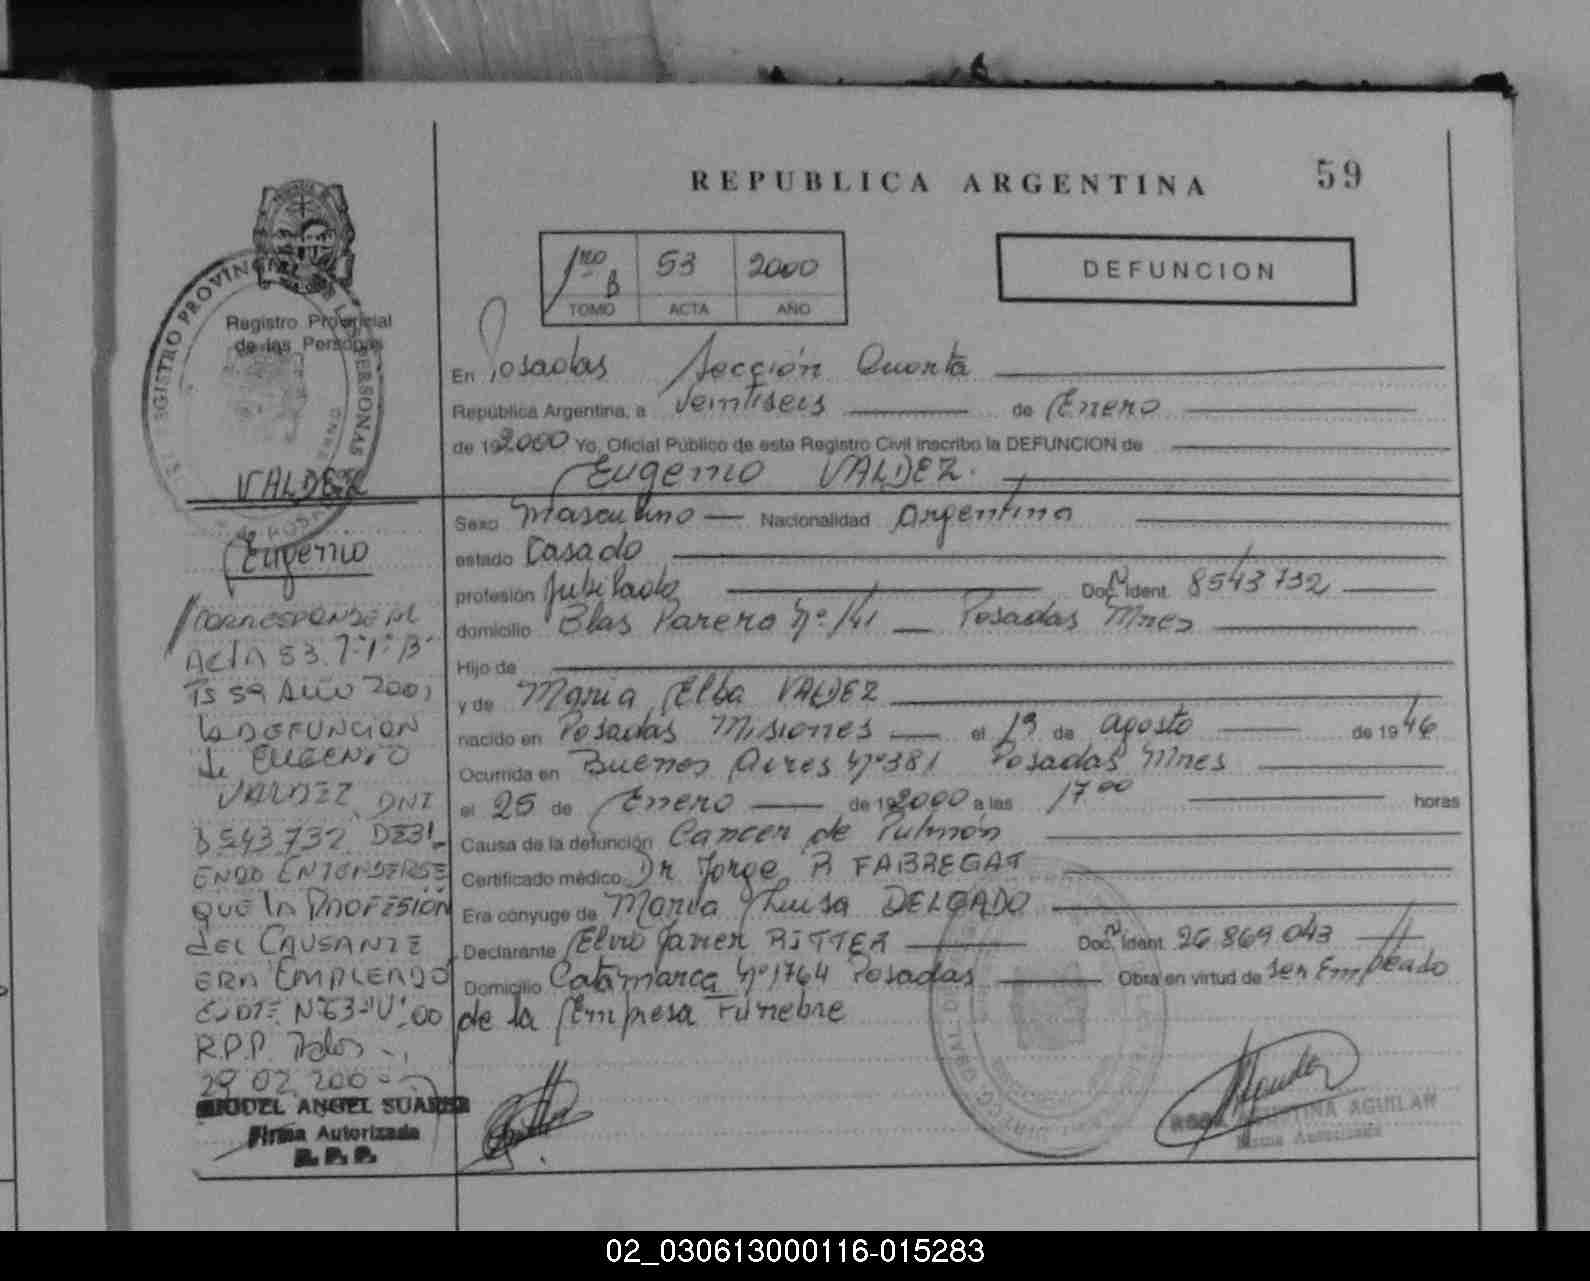 REPUBLICA ARGENTINA
59
1ro B 53 2000
TOMO ACTA AÑO
DEFUNCION
Registro Provincial
de las Personas
VALDEZ
Eugenio
CORRESPONDE AL
ACTA 53. Tº1º"B"
Fs 59 AÑO 2000,
la DEFUNCION
de EUGENIO
VALDEZ, DNI
8543732 DEBI_
ENDO ENTENDERSE
QUE la PROFESION
del CAUSANTE
ERA EMPLEADO
R.P.P.
29 02 2000
MIGUEL ANGEL SUAREZ
Firma Autorizada
R. P. P.
En Posadas Sección Cuarta
República Argentina, a veintiseis de Enero
de 192000 Yo, Oficial Público de este Registro Civil inscribo la DEFUNCION de
Eugenio VALDEZ.
Sexo Masculino Nacionalidad Argentina
estado Casado
profesión Jubilado Doc. Ident. 8543732
domicilio Blas Parera Nº 141 Posadas Mnes
Hijo de
y de María Elba VALDEZ
nacido en Posadas Misiones el 19 de agosto de 1946
Ocurrida en Buenos Aires Nº 381 Posadas Mnes
el 25 de Enero de 192000 a las 17 00 horas
Causa de la defunción Cancer de Pulmón
Certificado médico Dr Jorge R FABREGAT
Era cónyuge de María Luisa DELGADO
Declarante Elvio Javier RITTER Doc. Ident. 26 869 043
Domicilio Catamarca Nº 1764 Posadas Obra en virtud de ser Empleado
de la Empresa Funebre
AGUILAR
Firma Autorizada
02_030613000116-015283